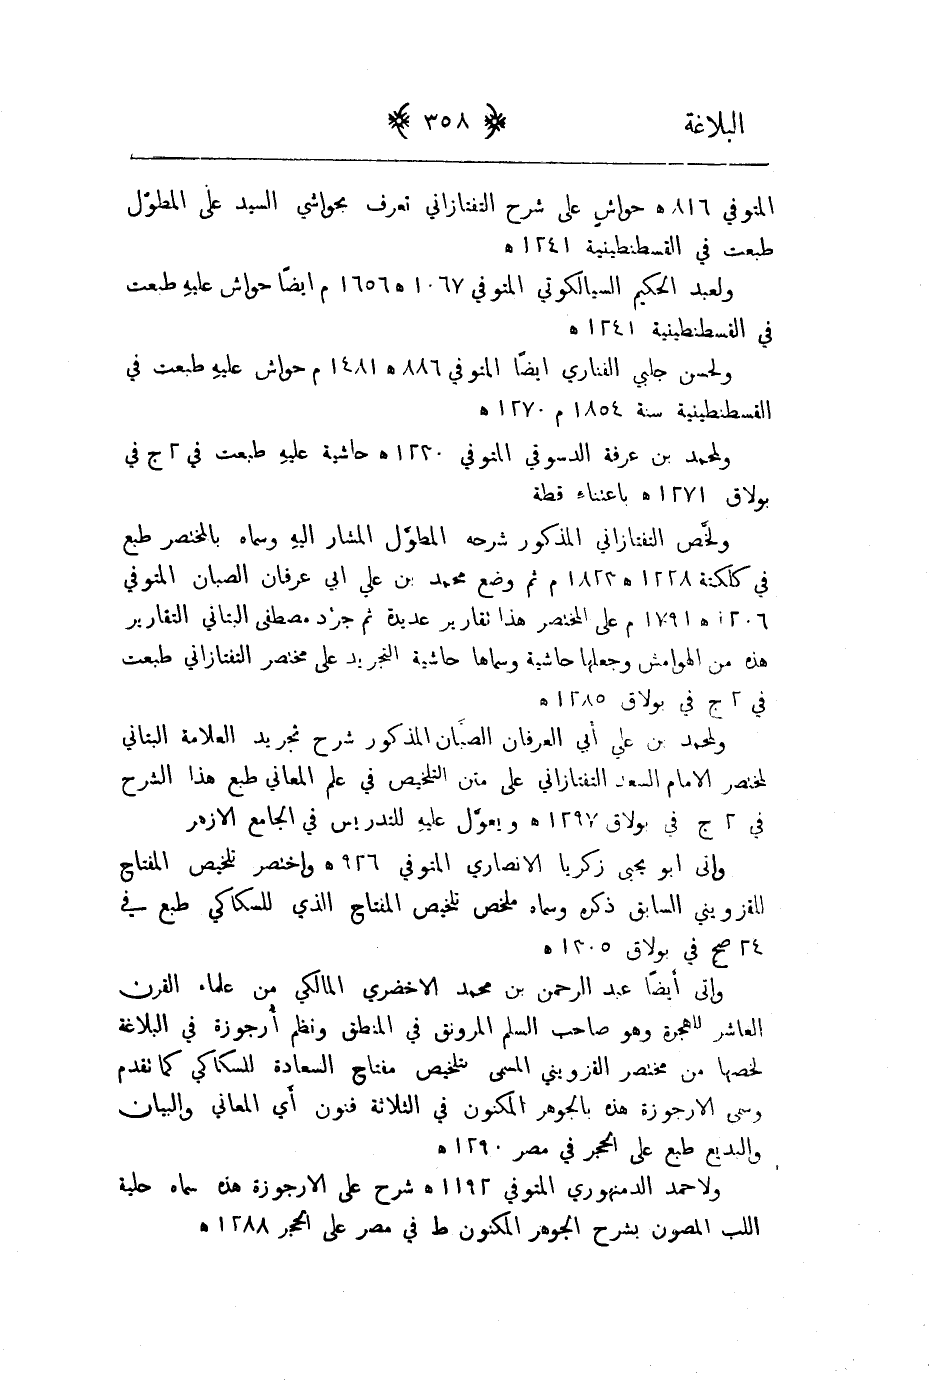 البلاغة ﴿ ٣٥٨ ﴾
المتوفي ٨١٦ ه حواشٍ على شرح التفتازاني تعرف بحواشي السيد على المطوّل
طبعت في القسطنطينية ١٢٤١ ه
ولعبد الحكيم السيالكوتي المتوفي ١٠٦٧ ه ١٦٥٦ م ايضًا حواش عليهِ طبعت
في القسطنطينية ١٢٤١ ه
ولحسن جلبي الفناري ايضًا المتوفي ٨٨٦ ه ١٤٨١ م حواش عليهِ طبعت في
القسطنطينية سنة ١٨٥٤ م ١٢٧٠ ه
ولمحمد بن عرفة الدسوقي المتوفي ١٢٣٠ ه حاشية عليهِ طبعت في ٢ ج في
بولاق ١٢٧١ ه باعتناء قطة
ولخَّص التفتازاني المذكور شرحه المطوَّل المشار اليهِ وسماه بالمختصر طبع
في كلكتة ١٢٢٨ ه ١٨٢٣ م ثم وضع محمد بن علي ابي عرفان الصبان المتوفي
١٢٠٦ ه ١٧٩١ م على المختصر هذا تقارير عديدة ثم جرَّد مصطفى البناني التقارير
هذه من الهوامش وجعلها حاشية وسماها حاشية التجريد على مختصر التفتازاني طبعت
في ٢ ج في بولاق ١٢٨٥ ه
ولمحمد بن علي أبي العرفان الصبَّان المذكور شرح تجريد العلامة البناني
لمختصر الامام السعد التفتازاني على متن التلخيص في علم المعاني طبع هذا الشرح
في ٢ ج في بولاق ١٢٩٧ ه ويعوّل عليهِ للتدريس في الجامع الازهر
واتى ابو يحيى زكريا الانصاري المتوفي ٩٢٦ ه واختصر تلخيص المفتاح
للقزويني السابق ذكره وسماه ملخص تلخيص المفتاح الذي للسكاكي طبع في
٢٤ صح في بولاق ١٣٠٥ ه
واتى أيضًا عبد الرحمن بن محمد الاخضري المالكي من علماء القرن
العاشر للهجرة وهو صاحب السلم المرونق في المنطق ونظم أُرجوزة في البلاغة
لخصها من مختصر القزويني المسمى بتلخيص مفتاح السعادة للسكاكي كما تقدم
وسمى الارجوزة هذه بالجوهر المكنون في الثلاثة فنون أي المعاني والبيان
والبديع طبع على الحجر في مصر ١٢٩٠ ه
ولاحمد الدمنهوري المتوفي ١١٩٢ ه شرح على الارجوزة هذه سماه حلية
اللب المصون بشرح الجوهر المكنون ط في مصر على الحجر ١٢٨٨ ه